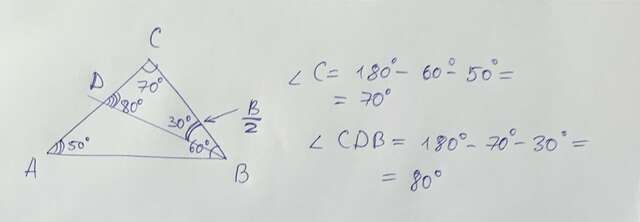 C
D
70°
80°
30°
B/2
A
50°
60°
B
∠ C = 180° - 60° - 50° =
= 70°
∠ CDB = 180° - 70° - 30° =
= 80°